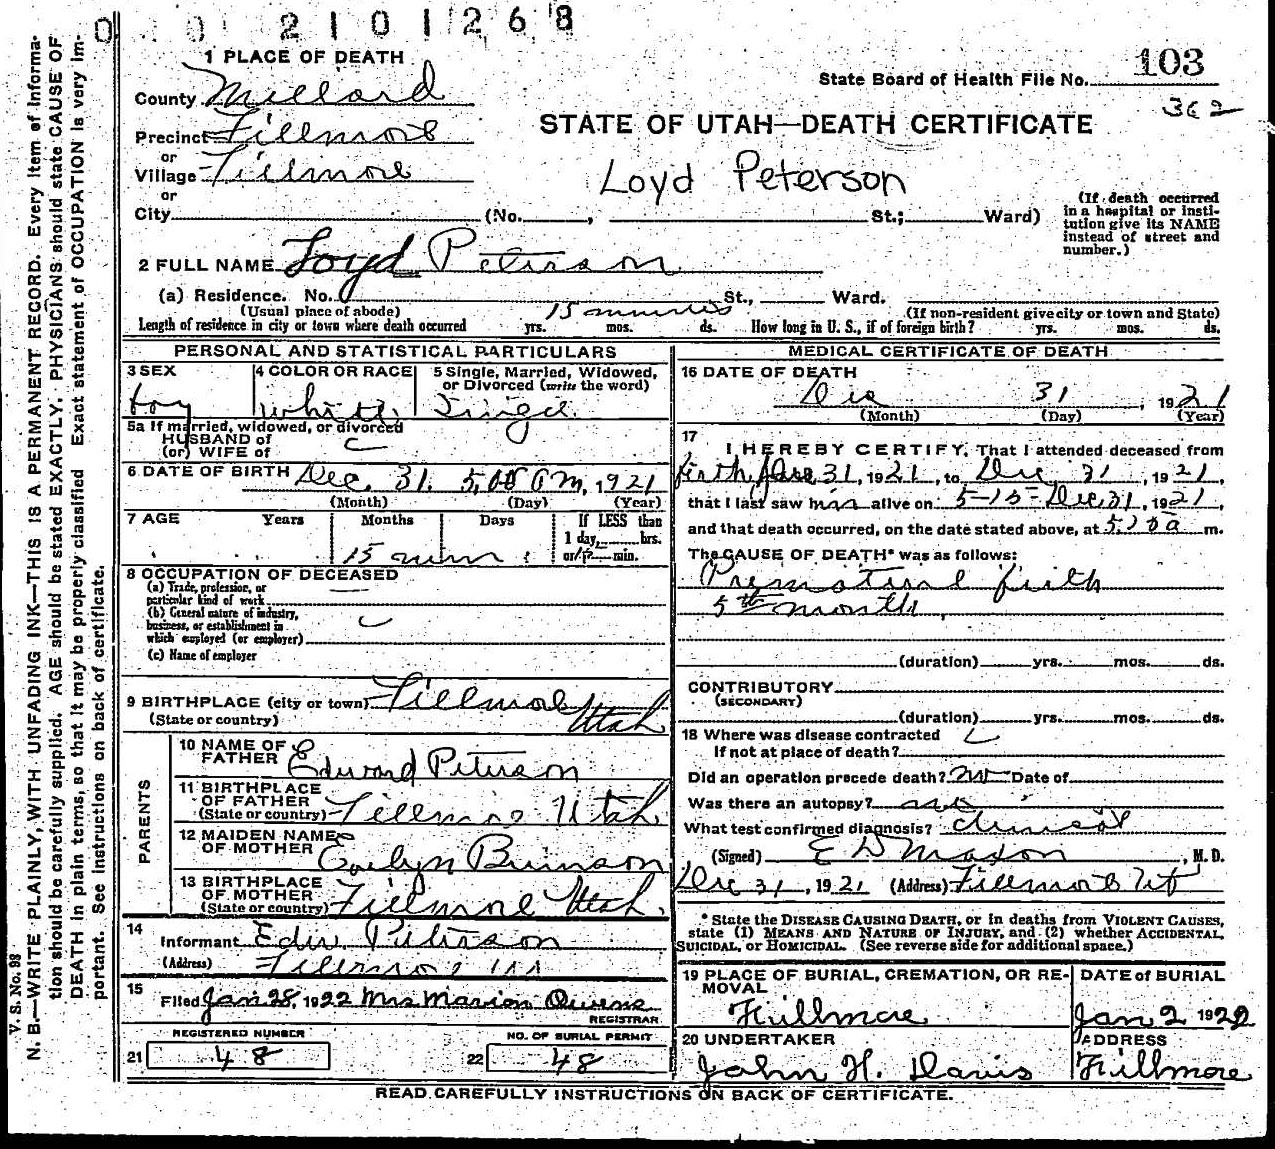 0 0 2101268
1 PLACE OF DEATH
County Millard
Precinct Fillmore
or
Village Fillmore
or
City (No. , St.; Ward)
State Board of Health File No. 103
362
STATE OF UTAH—DEATH CERTIFICATE
Loyd Peterson
(If death occurred
in a hospital or insti-
tution give its NAME
instead of street and
number.)
2 FULL NAME Loyd Peterson
(a) Residence. No. St., Ward.
(Usual place of abode) (If non-resident give city or town and State)
15 minutes
Length of residence in city or town where death occurred yrs. mos. ds. How long in U. S., if of foreign birth? yrs. mos. ds.
PERSONAL AND STATISTICAL PARTICULARS
3 SEX
boy
4 COLOR OR RACE
white
5 Single, Married, Widowed,
or Divorced (write the word)
Single
5a If married, widowed, or divorced
HUSBAND of
(or) WIFE of
6 DATE OF BIRTH Dec. 31. 5,00 AM, 1921
(Month) (Day) (Year)
7 AGE Years Months Days If LESS than
1 day, hrs.
or min.
15 min
8 OCCUPATION OF DECEASED
(a) Trade, profession, or
particular kind of work
(b) General nature of industry,
business, or establishment in
which employed (or employer)
(c) Name of employer
9 BIRTHPLACE (city or town) Fillmore
(State or country) Utah
PARENTS
10 NAME OF
FATHER Edward Peterson
11 BIRTHPLACE
OF FATHER
(State or country) Fillmore Utah
12 MAIDEN NAME
OF MOTHER Evelyn Brunson
13 BIRTHPLACE
OF MOTHER
(State or country) Fillmore Utah.
14
Informant Edw. Peterson
(Address) Fillmore
15
Filed Jan 28, 1922 Mrs Marion Owens
REGISTRAR
REGISTERED NUMBER
21 48
NO. OF BURIAL PERMIT
22 48
MEDICAL CERTIFICATE OF DEATH
16 DATE OF DEATH
Dec 31, 1921
(Month) (Day) (Year)
17
I HEREBY CERTIFY, That I attended deceased from
birth Dec 31, 1921, to Dec 31, 1921,
that I last saw him alive on 5-15- Dec 31, 1921,
and that death occurred, on the date stated above, at m.
The CAUSE OF DEATH* was as follows:
Premature birth
5th month
(duration) yrs. mos. ds.
CONTRIBUTORY
(SECONDARY)
(duration) yrs. mos. ds.
18 Where was disease contracted
If not at place of death?
Did an operation precede death? no Date of
Was there an autopsy? no
What test confirmed diagnosis? clinical
(Signed) E D Maxon, M. D.
Dec 31, 1921 (Address) Fillmore Ut
* State the DISEASE CAUSING DEATH, or in deaths from VIOLENT CAUSES,
state (1) MEANS AND NATURE OF INJURY, and (2) whether ACCIDENTAL,
SUICIDAL, or HOMICIDAL. (See reverse side for additional space.)
19 PLACE OF BURIAL, CREMATION, OR RE-
MOVAL
Fillmore
DATE of BURIAL
Jan 2 1922
20 UNDERTAKER
John H. Davis
ADDRESS
Fillmore
READ CAREFULLY INSTRUCTIONS ON BACK OF CERTIFICATE.
V. S. No. 98
N. B.—WRITE PLAINLY, WITH UNFADING INK—THIS IS A PERMANENT RECORD. Every item of informa-
tion should be carefully supplied. AGE should be stated EXACTLY. PHYSICIANS should state CAUSE OF
DEATH in plain terms, so that it may be properly classified. Exact statement of OCCUPATION is very im-
portant. See instructions on back of certificate.